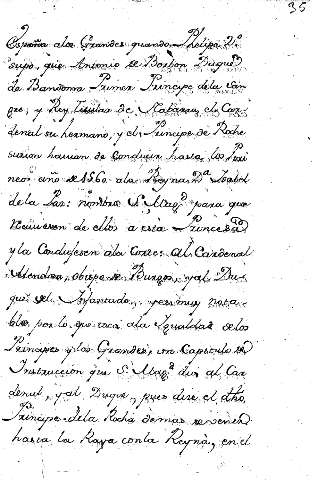 35
España a los Grandes quando Phelipe 2º
supo, que Antonio de Borbon Duque
de Bandoma Primer Principe de la San-
gre, y Rey Titular de Nabarra, el Car-
denal su hermano, y el Principe de Roche
surion hauian de conducir hasta los Piri-
neos año de 1560. a la Reyna Dª. Isabel
de la Paz: nombró S. Magd. para que
reciuiesen de ellos a esta Princesa
y la Condugesen a la Corte: al Cardenal
Mendoza, obispo de Burgos, y al Du-
que del Infantado, y es muy nota-
ble por lo que toca a la Igualdad de los
Principes y los Grandes, un Capitulo de
Instruccion que S. Magd. dió al Car-
denal, y al Duque, pues dice el dho.
Principe de la Rocha demas se vener
hasta la Raya con la Reyna, en el